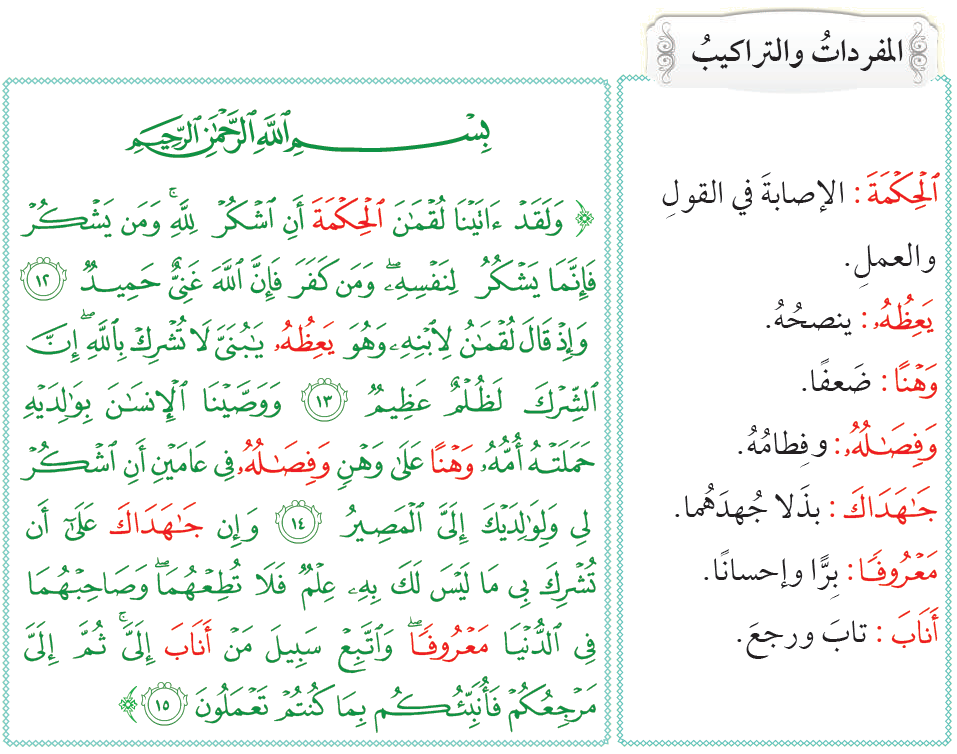 المفرداتُ والتراكيبُ
ٱلْحِكْمَةَ : الإصابةَ في القولِ
والعملِ.
يَعِظُهُۥ : ينصحُهُ.
وَهْنًا : ضَعفًا.
وَفِصَـٰلُهُۥ : وفِطامُهُ.
جَـٰهَدَاكَ : بذَلا جُهدَهُما.
مَعْرُوفًا : بِرًّا وإحسانًا.
أَنَابَ : تابَ ورجعَ.
بِسْمِ ٱللَّهِ ٱلرَّحْمَـٰنِ ٱلرَّحِيمِ
﴿ وَلَقَدْ ءَاتَيْنَا لُقْمَـٰنَ ٱلْحِكْمَةَ أَنِ ٱشْكُرْ لِلَّهِ ۚ وَمَن يَشْكُرْ
فَإِنَّمَا يَشْكُرُ لِنَفْسِهِۦ ۖ وَمَن كَفَرَ فَإِنَّ ٱللَّهَ غَنِىٌّ حَمِيدٌ ١٢
وَإِذْ قَالَ لُقْمَـٰنُ لِٱبْنِهِۦ وَهُوَ يَعِظُهُۥ يَـٰبُنَىَّ لَا تُشْرِكْ بِٱللَّهِ ۖ إِنَّ
ٱلشِّرْكَ لَظُلْمٌ عَظِيمٌ ١٣ وَوَصَّيْنَا ٱلْإِنسَـٰنَ بِوَٰلِدَيْهِ
حَمَلَتْهُ أُمُّهُۥ وَهْنًا عَلَىٰ وَهْنٍ وَفِصَـٰلُهُۥ فِى عَامَيْنِ أَنِ ٱشْكُرْ
لِى وَلِوَٰلِدَيْكَ إِلَىَّ ٱلْمَصِيرُ ١٤ وَإِن جَـٰهَدَاكَ عَلَىٰٓ أَن
تُشْرِكَ بِى مَا لَيْسَ لَكَ بِهِۦ عِلْمٌ فَلَا تُطِعْهُمَا ۖ وَصَاحِبْهُمَا
فِى ٱلدُّنْيَا مَعْرُوفًا ۖ وَٱتَّبِعْ سَبِيلَ مَنْ أَنَابَ إِلَىَّ ۚ ثُمَّ إِلَىَّ
مَرْجِعُكُمْ فَأُنَبِّئُكُم بِمَا كُنتُمْ تَعْمَلُونَ ١٥ ﴾